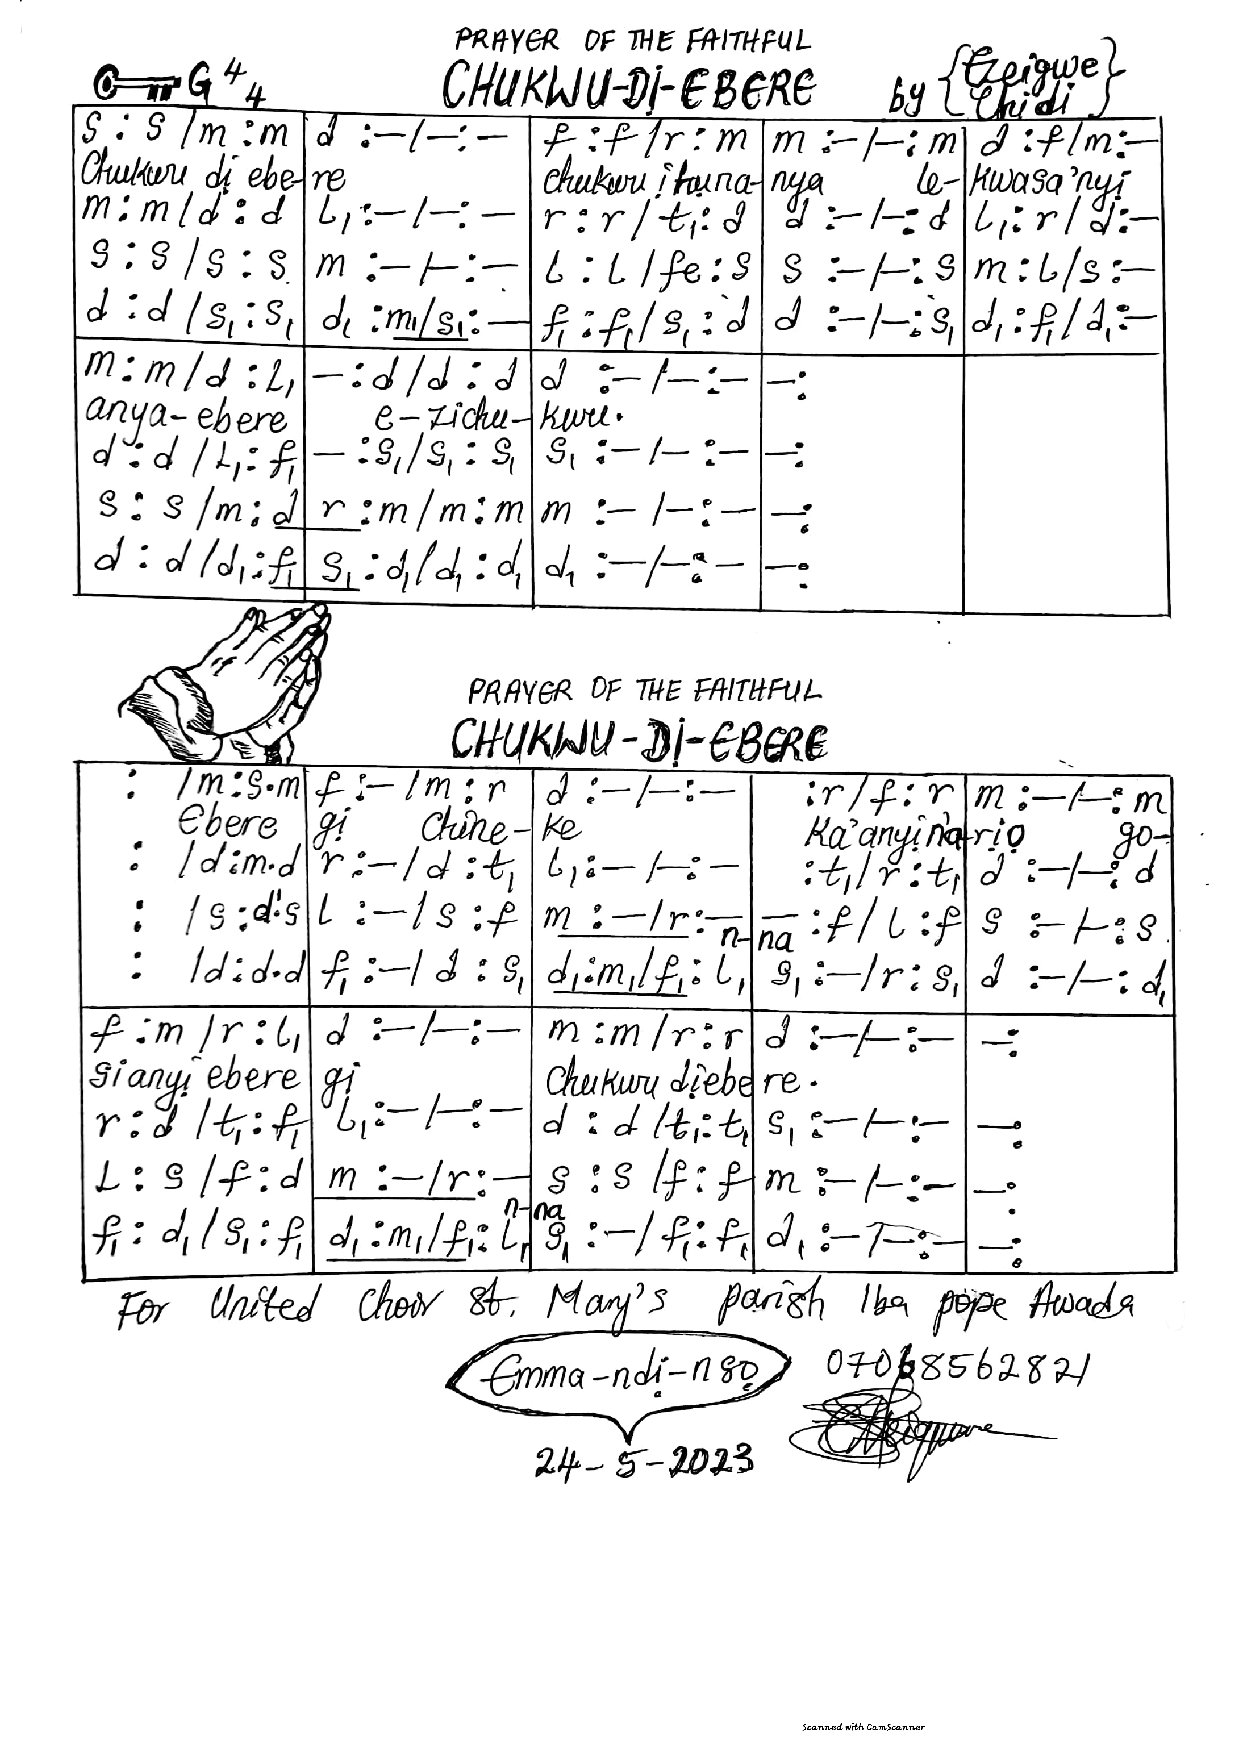 PRAYER OF THE FAITHFUL
G 4/4 CHUKWU-DỊ-EBERE by {Ezeigwe Chidi}
s : s /m : m | d :—/—: — | f : f /r : m | m :—/—: m | d : f /m :—
Chukwu dị ebe-re chukwu ịhụna-nya le-kwasa'nyị
m : m / d : d | l₁ :—/—: — | r : r / t₁ : d | d :—/—: d | l₁ : r / d :—
s : s / s : s | m :—/—: — | l : l / fe : s | s :—/—: s | m : l / s :—
d : d / s₁ : s₁ | d₁ : m₁/s₁ :— | f₁ : f₁ / s₁ : d | d :—/—: s₁ | d₁ : f₁ / d₁ :—
m : m / d : l₁ | — : d / d : d | d :—/—: — | — :
anya-ebere e-zichu-kwu.
d : d / l₁ : f₁ | — : s₁ / s₁ : s₁ | s₁ :—/—: — | — :
s : s / m : d | r : m / m : m | m :—/—: — | — :
d : d / d₁ : f₁ | s₁ : d₁ / d₁ : d₁ | d₁ :—/—: — | — :
PRAYER OF THE FAITHFUL
CHUKWU-DỊ-EBERE
: / m : s.m | f :— / m : r | d :—/—: — | : r / f : r | m :—/—: m
Ebere gị Chine-ke Ka'anyịna-rịọ go-
: / d : m.d | r :— / d : t₁ | l₁ :—/—: — | : t₁ / r : t₁ | d :—/—: d
: / s : d'.s | l :— / s : f | m :—/r :— | — : f / l : f | s :—/—: s
n-na
: / d : d.d | f₁ :— / d : s₁ | d₁ : m₁ / f₁ : l₁ | s₁ :— / r : s₁ | d :—/—: d₁
f : m / r : l₁ | d :—/—: — | m : m / r : r | d :—/—: — | — :
sianyị ebere gị Chukwu dịebe re.
r : d / t₁ : f₁ | l₁ :—/—: — | d : d / t₁ : t₁ | s₁ :—/—: — | — :
l : s / f : d | m :—/r :— | s : s / f : f | m :—/—: — | — :
n-na
f₁ : d₁ / s₁ : f₁ | d₁ : m₁ / f₁ : l₁ | s₁ :— / f₁ : f₁ | d₁ :—/—: — | — :
For United Choir St. Mary's parish Iba pope Awada
Emma-ndị-nsọ 07068562821
24-5-2023
Scanned with CamScanner